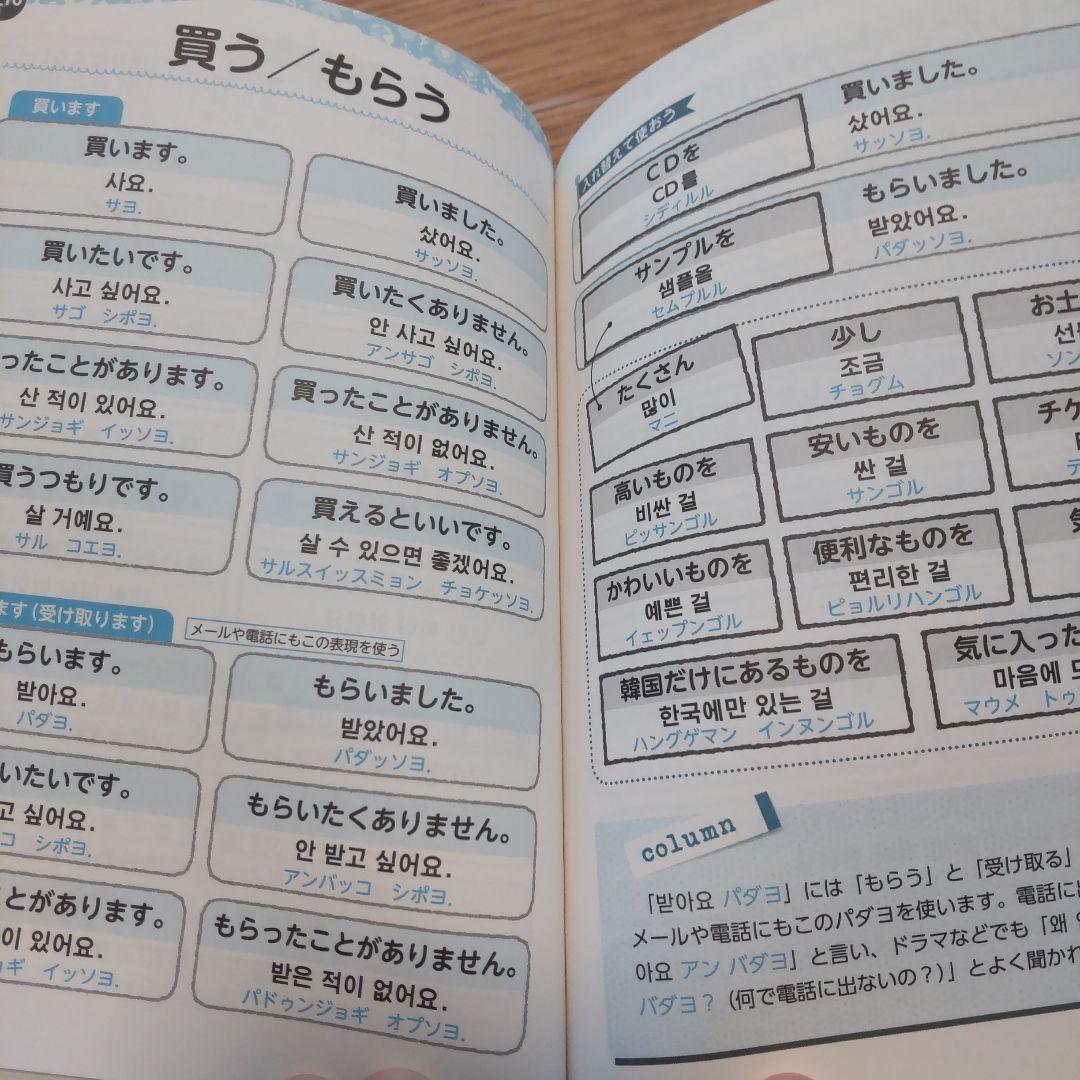 買う／もらう
買います
買います。
사요.
サヨ.
買いました。
샀어요.
サッソヨ.
買いたいです。
사고 싶어요.
サゴ シポヨ.
買いたくありません。
안 사고 싶어요.
アンサゴ シポヨ.
ったことがあります。
산 적이 있어요.
サンジョギ イッソヨ.
買ったことがありません。
산 적이 없어요.
サンジョギ オプソヨ.
買うつもりです。
살 거예요.
サル コエヨ.
買えるといいです。
살 수 있으면 좋겠어요.
サルスイッスミョン チョケッソヨ.
ます（受け取ります）
メールや電話にもこの表現を使う
もらいます。
받아요.
パダヨ.
もらいました。
받았어요.
パダッソヨ.
いたいです。
고 싶어요.
コ シポヨ.
もらいたくありません。
안 받고 싶어요.
アンバッコ シポヨ.
とがあります。
이 있어요.
ギ イッソヨ.
もらったことがありません。
받은 적이 없어요.
パドゥンジョギ オプソヨ.
入れ替えて使おう
CDを
CD를
シディルル
買いました。
샀어요.
サッソヨ.
サンプルを
샘플을
セムプルル
もらいました。
받았어요.
パダッソヨ.
たくさん
많이
マニ
少し
조금
チョグム
お土
선
ソン
高いものを
비싼 걸
ピッサンゴル
安いものを
싼 걸
サンゴル
チケ
かわいいものを
예쁜 걸
イェップンゴル
便利なものを
편리한 걸
ピョルリハンゴル
気
韓国だけにあるものを
한국에만 있는 걸
ハングゲマン インヌンゴル
気に入った
마음에
マウメ トゥ
column
「받아요 パダヨ」には「もらう」と「受け取る」
メールや電話にもこのパダヨを使います。電話に出
아요 アン バダヨ」と言い、ドラマなどでも「왜
バダヨ？（何で電話に出ないの？）」とよく聞かれ